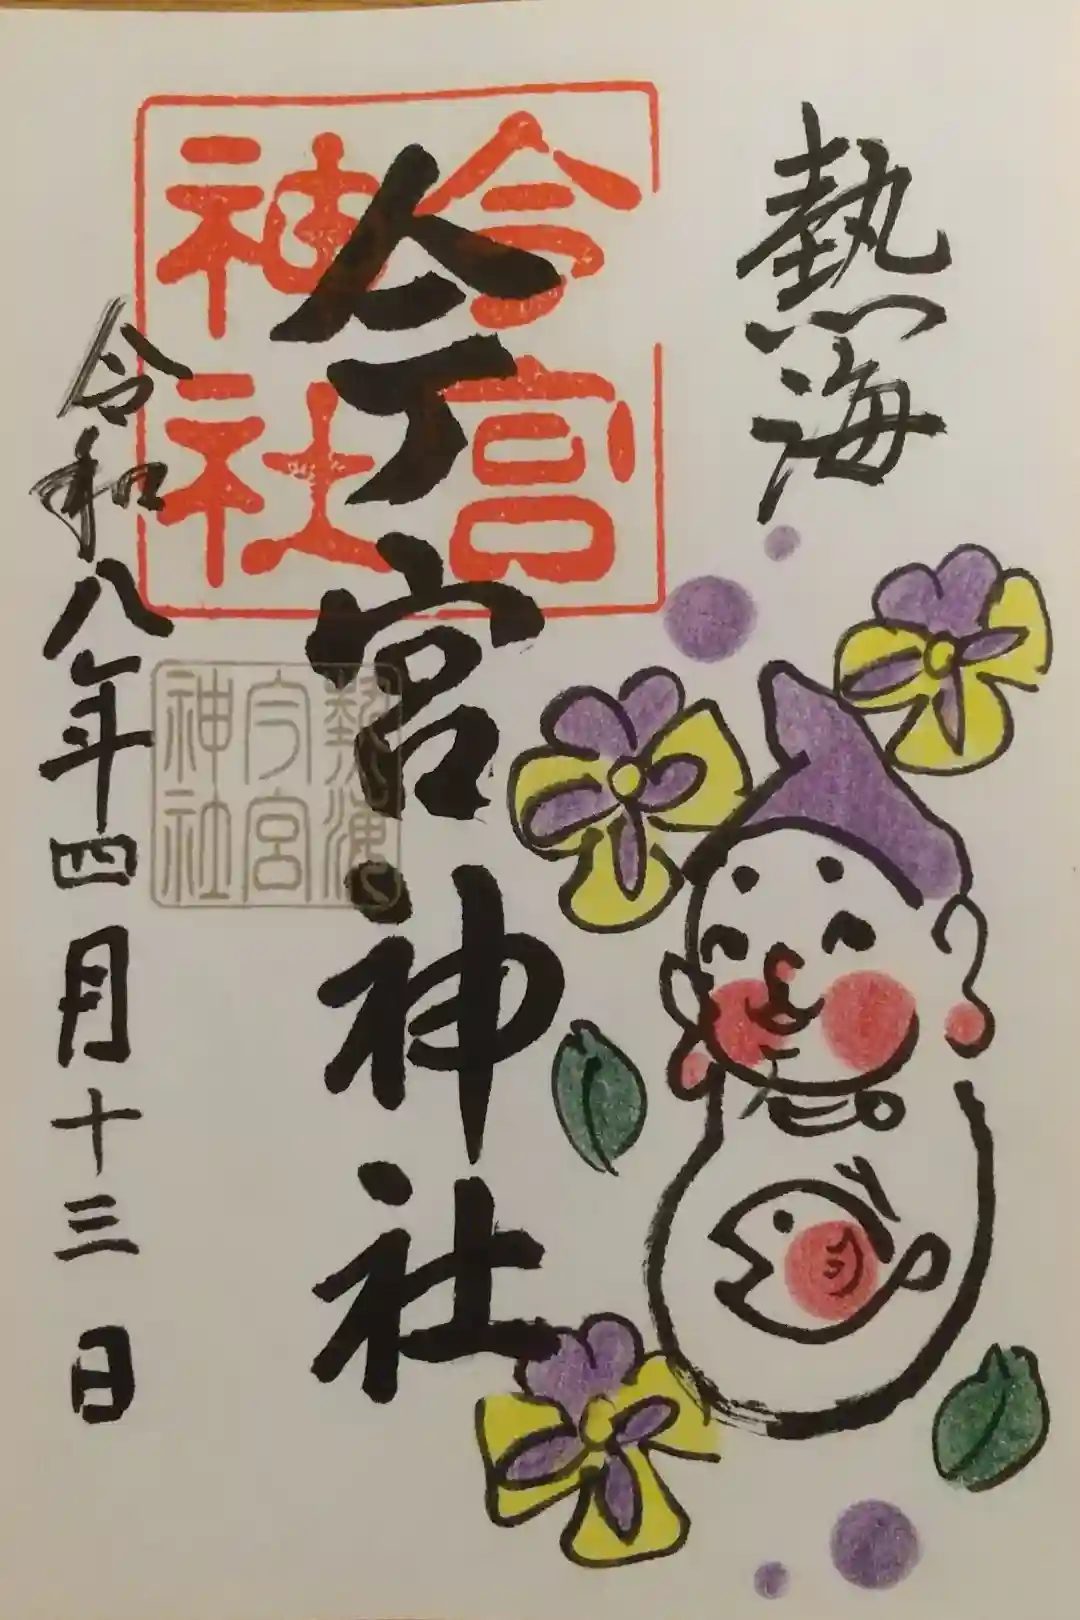 熱海
今宮
神社
今宮神社
熱海
今宮
神社
令和八年四月十三日